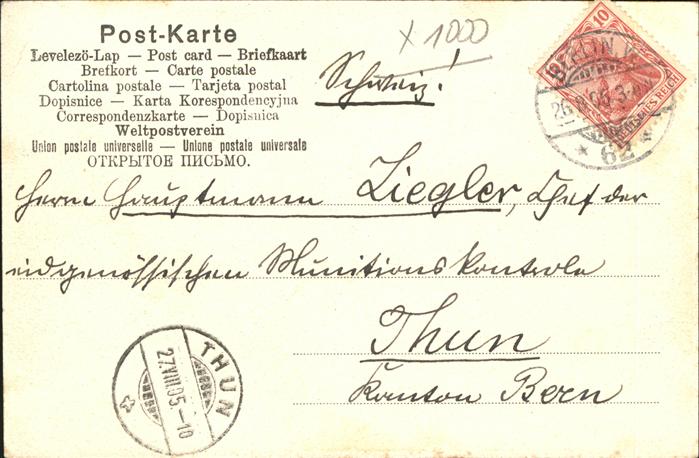 Post-Karte
Levelezö-Lap — Post card — Briefkaart
Brefkort — Carte postale
Cartolina postale — Tarjeta postal
Dopisnice — Karta Korespondencyjna
Correspondenzkarte — Dopisnica
Weltpostverein
Union postale universelle — Unione postale universale
ОТКРЫТОЕ ПИСЬМО.
x 1000
Schweiz!
10
DEUTSCHES REICH
BERLIN
62
Herrn Hauptmann Ziegler, Chef der
eidgenössischen Munitionskontrole
Thun
Kanton Bern
THUN
27.VIII.05.-10